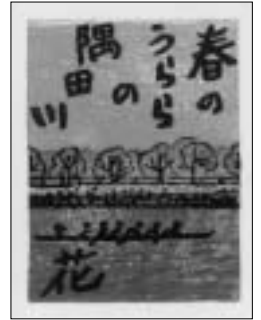 春の
うららの
隅田川
花